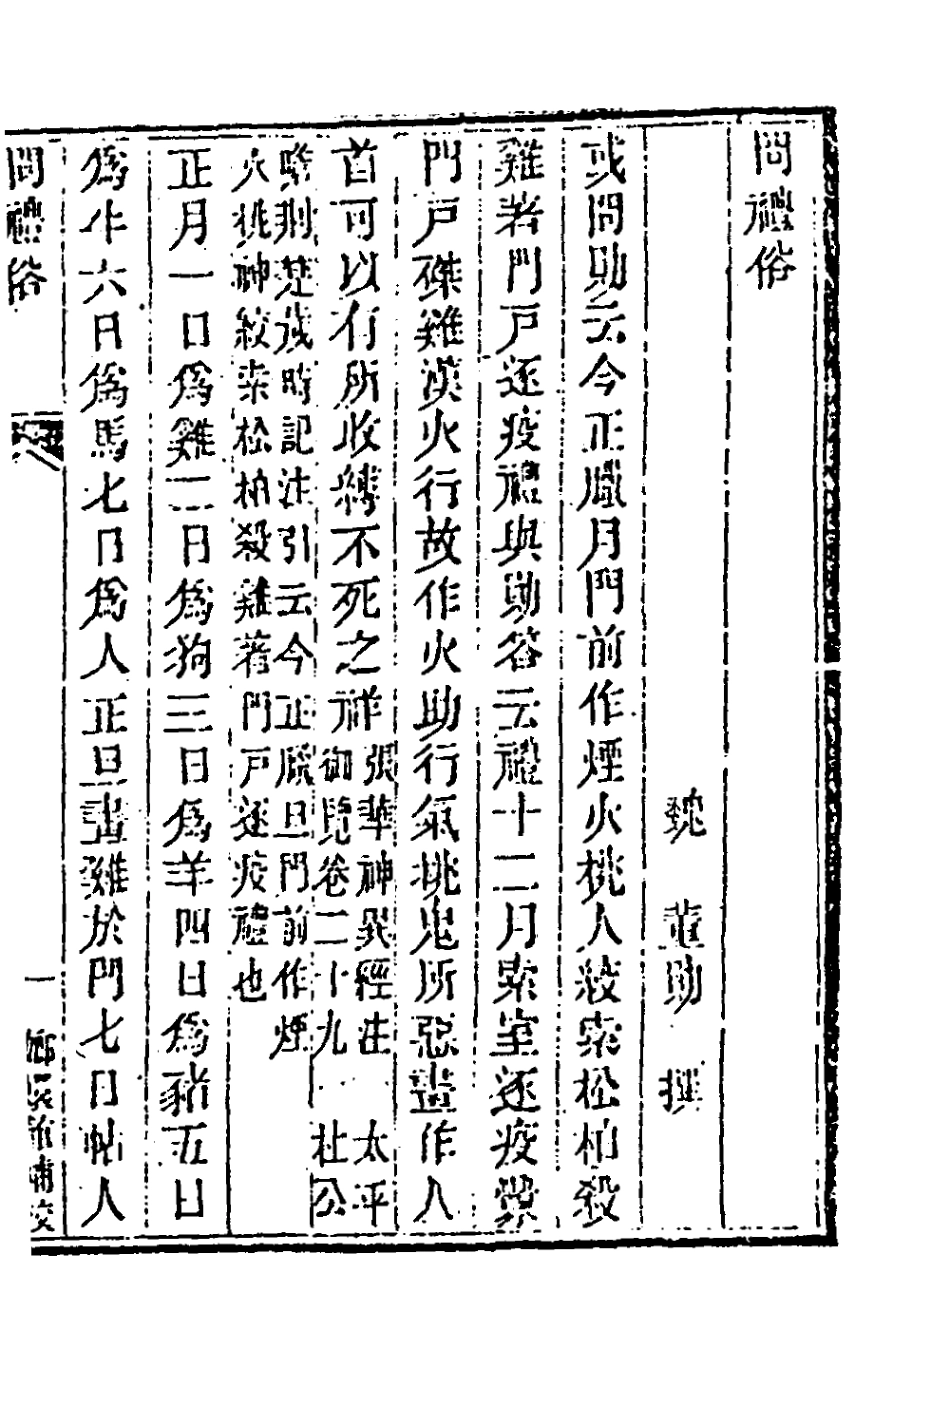 問禮俗
魏　董勛　撰
或問勛云今正臘月門前作煙火桃人絞索松柏殺
雞著門戶逐疫禮與勛答云禮十二月索室逐疫釁
門戶磔雞漢火行故作火助行氣桃鬼所惡畫作人
首可以有所收縛不死之祥張華神異經注　太平御覽卷二十九　杜公
瞻荆楚歲時記注引云今正臘旦門前作煙火桃神絞索松柏殺雞著門戶逐疫禮也
正月一日為雞二日為狗三日為羊四日為豬五日
為牛六日為馬七日為人正旦畫雞於門七日帖人
問禮俗
一